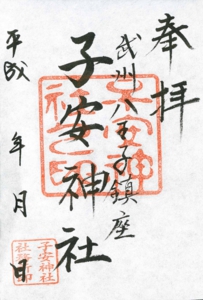 奉拝
武州八王子鎮座
子安神社
平成 年 月 日
子安神社之印
子安神社社務所印